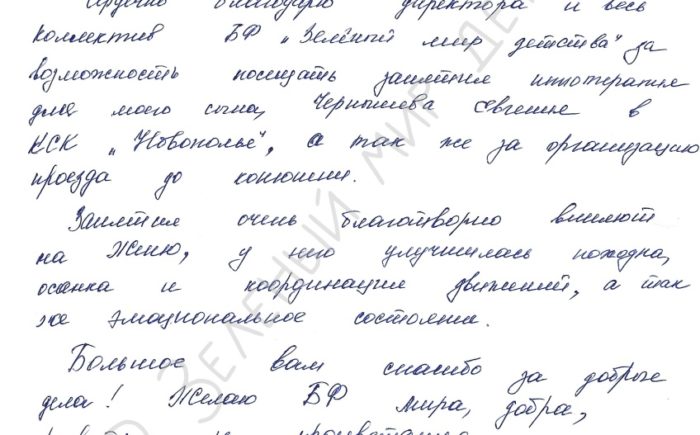 Сердечно благодарю директора и весь
коллектив БФ "Зелёный мир детства" за
возможность посещать занятия иппотерапие
для моего сына, Чернышева Евгения в
КСК "Новополье", а так же за организацию
проезда до конюшни.
Занятия очень благотворно влияют
на Женю, у него улучшилась походка,
осанка и координация движений, а так
же эмоциональное состояние.
Большое вам спасибо за добрые
дела! Желаю БФ мира, добра,
и процветания
ЗЕЛЕНЫЙ МИР ДЕ